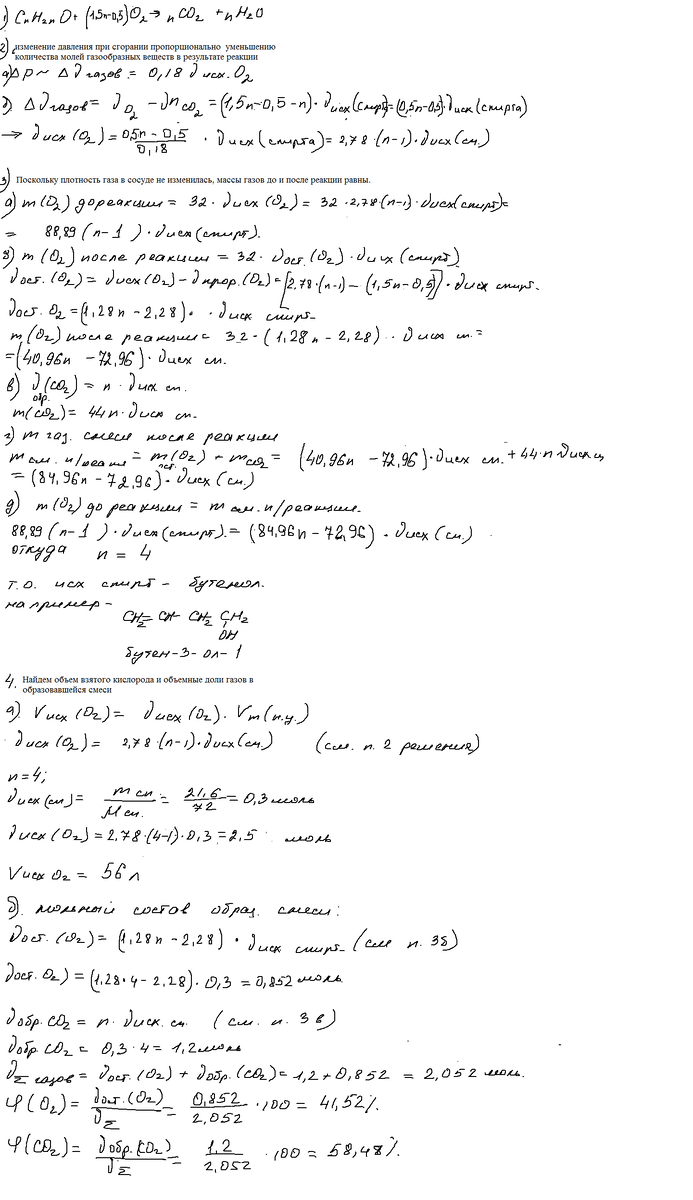 1) CnH2nO + (1,5n-0,5)O2 → nCO2 + nH2O
2) изменение давления при сгорании пропорционально уменьшению
количества молей газообразных веществ в результате реакции
а) Δp ~ Δ ν газов = 0,18 ν исх. O2
б) Δ ν газов = νO2 - νnCO2 = (1,5n-0,5-n)·ν исх (спирта) = (0,5n-0,5)·ν исх (спирта)
→ ν исх (O2) = 0,5n-0,5 / 0,18 · ν исх (спирта) = 2,78·(n-1)·ν исх (см.)
3) Поскольку плотность газа в сосуде не изменилась, массы газов до и после реакции равны.
а) m(O2) до реакции = 32·ν исх (O2) = 32·2,78·(n-1)·ν исх (спирт) =
= 88,89(n-1)·ν исх (спирт).
б) m(O2) после реакции = 32·ν ост. (O2)·ν исх (спирт)
ν ост. (O2) = ν исх (O2) - ν прор. (O2) = [2,78·(n-1) - (1,5n-0,5)]·ν исх спирт.
ν ост. O2 = (1,28n - 2,28)· ·ν исх спирт.
m(O2) после реакции = 32·(1,28n - 2,28)··ν исх с.=
= (40,96n - 72,96)·ν исх см.
в) ν(CO2) обр. = n·ν исх см.
m(CO2) = 44n·ν исх см.
г) m газ. смеси после реакции
m см. п/реакц = m(O2) ост. + mCO2 = (40,96n - 72,96)·ν исх см. + 44·n ν исх ц
= (84,96n - 72,96)·ν исх (см.)
д) m(O2) до реакции = m см. п/реакции.
88,89(n-1)·ν исх (спирт) = (84,96n - 72,96)·ν исх (см.)
откуда n = 4
т.о. исх спирт - бутенол.
например -
CH2= CH CH2 CH2
OH
бутен-3-ол-1
4. Найдем объем взятого кислорода и объемные доли газов в
образовавшейся смеси
а) V исх (O2) = ν исх (O2)·Vm (н.у.)
ν исх (O2) = 2,78·(n-1)·ν исх (см.) (см. п. 2 решения)
n = 4;
ν исх (сп) = m сп / M сп. = 21,6 / 72 = 0,3 моль
ν исх (O2) = 2,78·(4-1)·0,3 = 2,5 моль
V исх O2 = 56 л
б). мольный состав образ. смеси:
ν ост. (O2) = (1,28n - 2,28)·ν исх спирт- (см п. 3б)
ν ост. O2) = (1,28·4 - 2,28)·0,3 = 0,852 моль
ν обр. CO2 = n·ν исх. сп. (см. п. 3 в)
ν обр. CO2 = 0,3·4 = 1,2 моль
νΣ газов = ν ост. (O2) + ν обр. (CO2) = 1,2 + 0,852 = 2,052 моль.
φ(O2) = ν ост. (O2) / νΣ = 0,852 / 2,052 ·100 = 41,52%.
φ(CO2) = ν обр. (CO2) / νΣ = 1,2 / 2,052 ·100 = 58,48%.